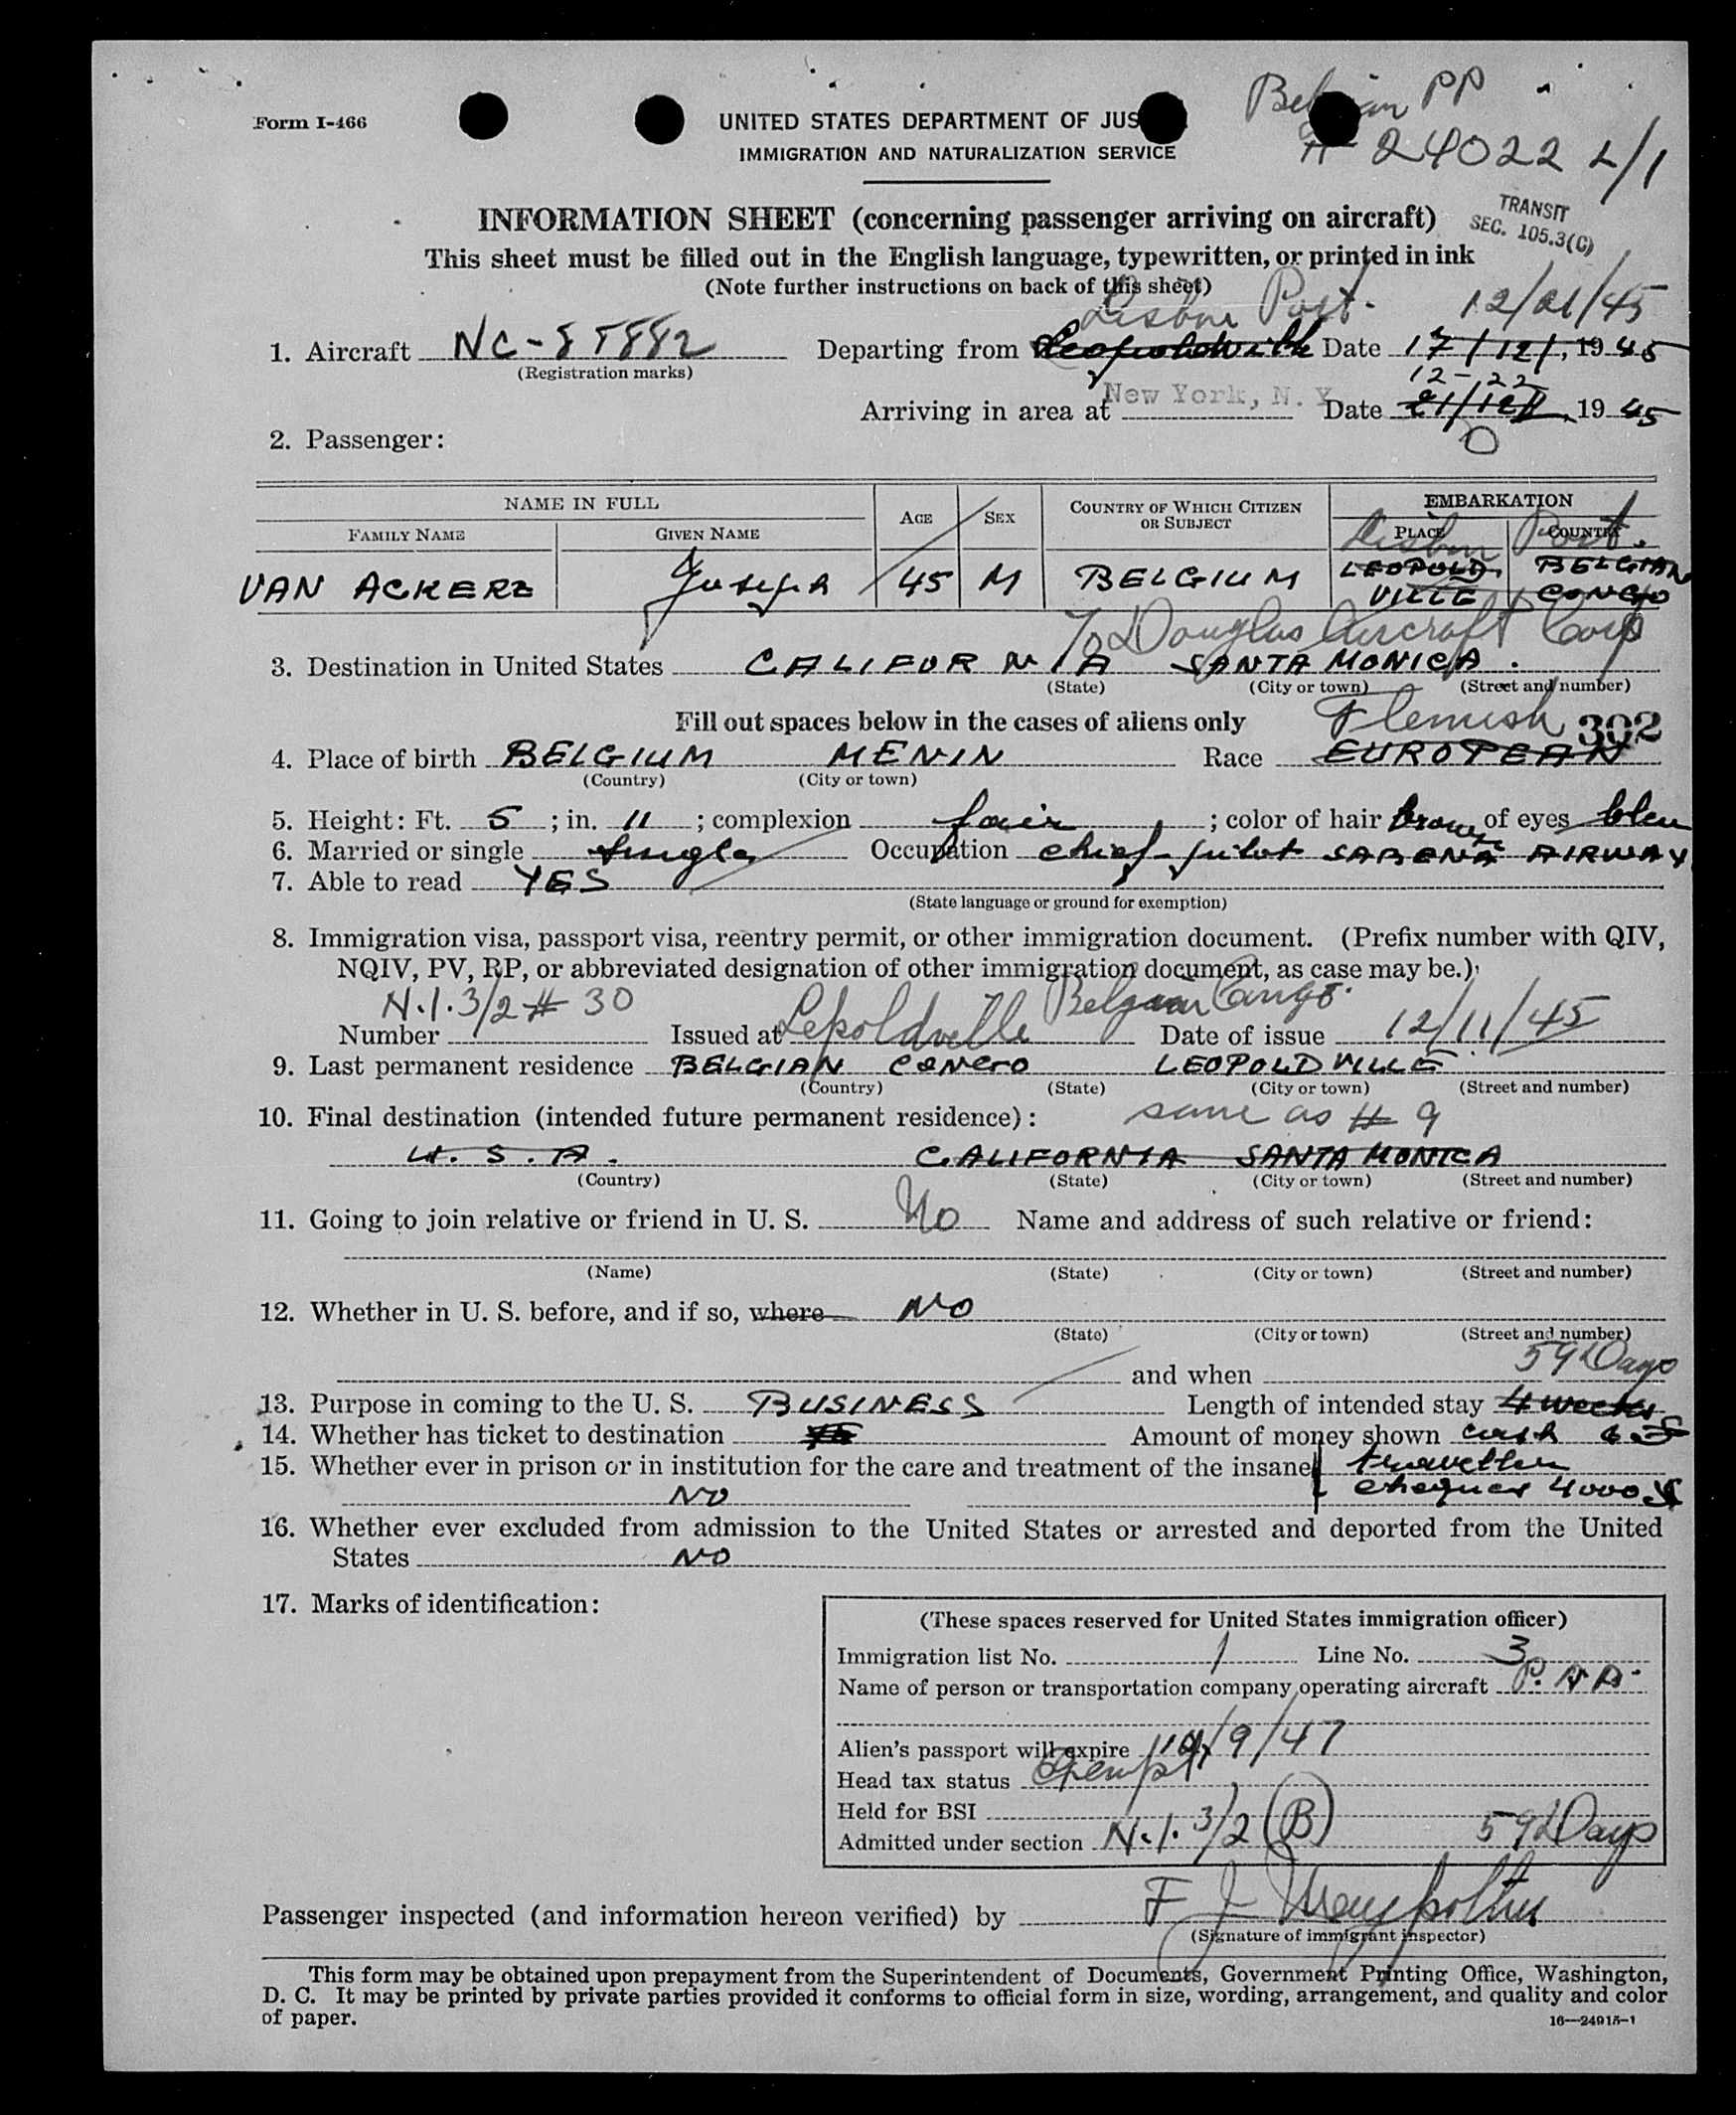 Belgian PP
Form I-466
UNITED STATES DEPARTMENT OF JUS
# 24022 L/1
IMMIGRATION AND NATURALIZATION SERVICE
TRANSIT
SEC. 105.3(C)
INFORMATION SHEET (concerning passenger arriving on aircraft)
This sheet must be filled out in the English language, typewritten, or printed in ink
(Note further instructions on back of this sheet)
Lisbon Port. 12/21/45
1. Aircraft NC-88882 Departing from Leopoldville Date 17/12/, 1945
(Registration marks)
12-22
Arriving in area at New York, N. Y Date 21/12, 1945
2. Passenger:
NAME IN FULL
FAMILY NAME GIVEN NAME AGE SEX COUNTRY OF WHICH CITIZEN OR SUBJECT EMBARKATION
PLACE COUNTRY
Lisbon Port.
VAN ACKERE Joseph 45 M BELGIUM LEOPOLDVILLE BELGIAN CONGO
To Douglas Aircraft Corp
3. Destination in United States CALIFORNIA SANTA MONICA.
(State) (City or town) (Street and number)
Fill out spaces below in the cases of aliens only Flemish 302
4. Place of birth BELGIUM MENIN Race EUROPEAN
(Country) (City or town)
5. Height: Ft. 5; in. 11; complexion fair; color of hair brown of eyes bleu
6. Married or single Single Occupation chief pilot SABENA AIRWAY
7. Able to read YES
(State language or ground for exemption)
8. Immigration visa, passport visa, reentry permit, or other immigration document. (Prefix number with QIV,
NQIV, PV, RP, or abbreviated designation of other immigration document, as case may be.)
N.I. 3/2 # 30 Belgian Congo.
Number Issued at Lepoldville Date of issue 12/11/45
9. Last permanent residence BELGIAN CONGO LEOPOLDVILLE
(Country) (State) (City or town) (Street and number)
10. Final destination (intended future permanent residence): same as # 9
U.S.A. CALIFORNIA SANTA MONICA
(Country) (State) (City or town) (Street and number)
11. Going to join relative or friend in U. S. No Name and address of such relative or friend:
(Name) (State) (City or town) (Street and number)
12. Whether in U. S. before, and if so, where NO
(State) (City or town) (Street and number)
59 Days
and when
13. Purpose in coming to the U. S. BUSINESS Length of intended stay 4 weeks
14. Whether has ticket to destination Amount of money shown cash
15. Whether ever in prison or in institution for the care and treatment of the insane travellers
NO cheques 4000 $
16. Whether ever excluded from admission to the United States or arrested and deported from the United
States NO
17. Marks of identification:
(These spaces reserved for United States immigration officer)
Immigration list No. 1 Line No. 3
Name of person or transportation company operating aircraft P.A.A.
Alien's passport will expire /9/47
Head tax status Exempt
Held for BSI
Admitted under section N.I. 3/2 (B) 59 Days
Passenger inspected (and information hereon verified) by F J
(Signature of immigrant inspector)
This form may be obtained upon prepayment from the Superintendent of Documents, Government Printing Office, Washington,
D. C. It may be printed by private parties provided it conforms to official form in size, wording, arrangement, and quality and color
of paper.
16—24915-1